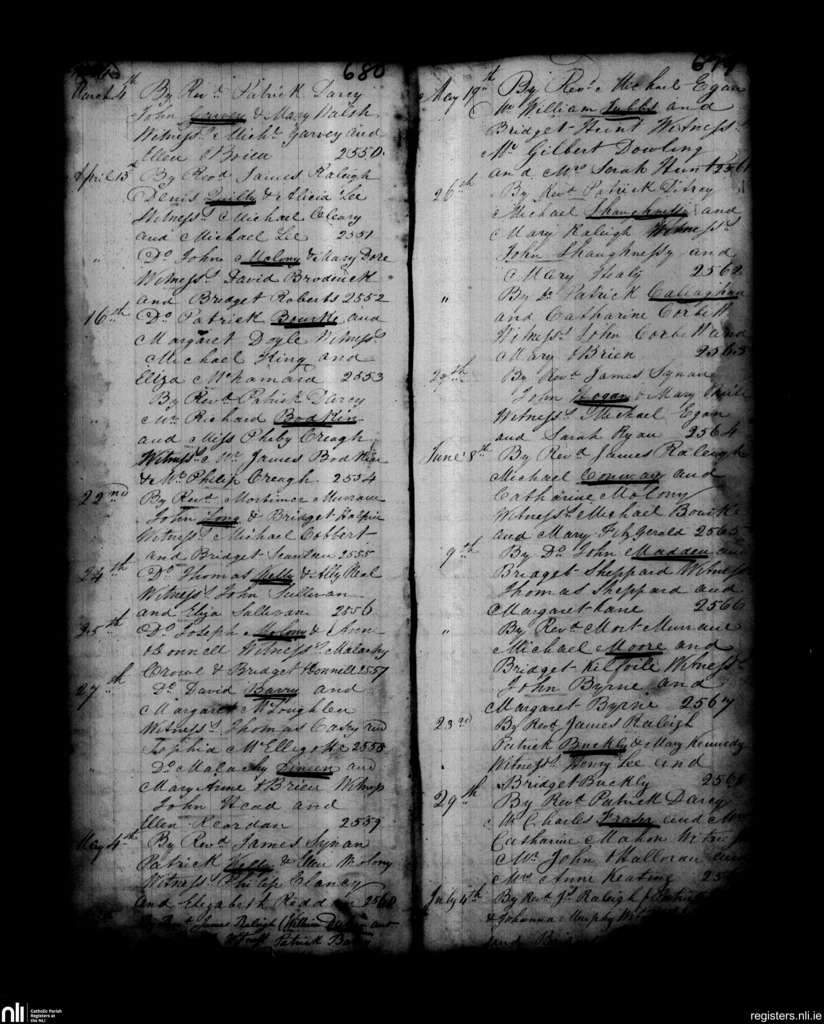 680
March 4th By Revd. Patrick Darcy
John Garvey & Mary Walsh
Witnesss. Michl. Garvey and
Ellen O Brien 2550
April 15 By Revd. James Raleigh
Denis Quilty & Alicia Lee
Witnesss. Michael Cleary
and Michael Lee 2551
" Do. John Molony & Mary Dore
Witnesss. David Broderick
and Bridget Roberts 2552
16th Do. Patrick Bourke and
Margaret Doyle Witnesss.
Michael King and
Eliza McNamara 2553
By Revd. Patrick Darcy
Mr. Richard Bodkin
and Miss Pheby Creagh
Witnesss. Mr. James Bodkin
& Mr. Philip Creagh 2554
22nd By Revd. Mortimer Murrane
John Long & Bridget
Witnesss. Michael Cobbert
and Bridget Scanlan 2555
24th Do. Thomas Kelly & Ally Neal
Witnesss. John Sullivan
and Eliza Sullivan 2556
25th Do. Joseph Molony & Ann
O Connell Witnesss. Malachy
Crowe & Bridget O Connell 2557
27th Do. David Barry and
Margaret McLoughlen
Witnesss. Thomas Casey and
Sophia McElligotte 2558
" Do. Malachy and
Mary Anne O Brien Witnesss
John Head and
Ellen Reordan 2559
May 4th By Revd. James Synan
Patrick Kelly & Ellen Molony
Witnesss. Philip Clancy
and Elizabeth Reddan 2560
By Revd. James Raleigh William and
Witnesss. Patrick
May 19th By Revd. Michael Egan
Mr. William Tubbs and
Bridget Hunt Witnesss.
Mr. Gilbert Dowling
and Mrs. Sarah Hunt 2561
26th By Revd. Patrick
Michael Shaughnessy and
Mary Raleigh Witnesss.
John Shaughnessy and
Mary Healy 2562
" By Do. Patrick Callaghan
and Catharine Corbett
Witnesss. John Corbett and
Mary O Brien 2563
29th By Revd. James Synan
John Hogan & Mary
Witnesss. Michael Egan
and Sarah Ryan 2564
June 8th By Revd. James Raleigh
Michael Conway and
Catharine Molony
Witnesss. Michael Bourke
and Mary FitzGerald 2565
9th By Do. John Madden and
Bridget Sheppard Witnesss
Thomas Sheppard and
Margaret Kane 2566
" By Revd. Mort Murrane
Michael Moore and
Bridget Kilfoile Witnesss.
John Byrne and
Margaret Byrne 2567
23rd By Revd. James Raleigh
Patrick Buckly & Mary Kennedy
Witnesss. Henry Lee and
Bridget Buckly 2568
29th By Revd. Patrick Darcy
Mr. Charles Fraser and Mrs
Catharine Mahon
Mr. John O Halloran and
Mrs. Anne Keating
July 4th By Revd. Js. Raleigh Patrick
& Johanna Murphy
and
nli Catholic Parish
Registers at
the NLI
registers.nli.ie